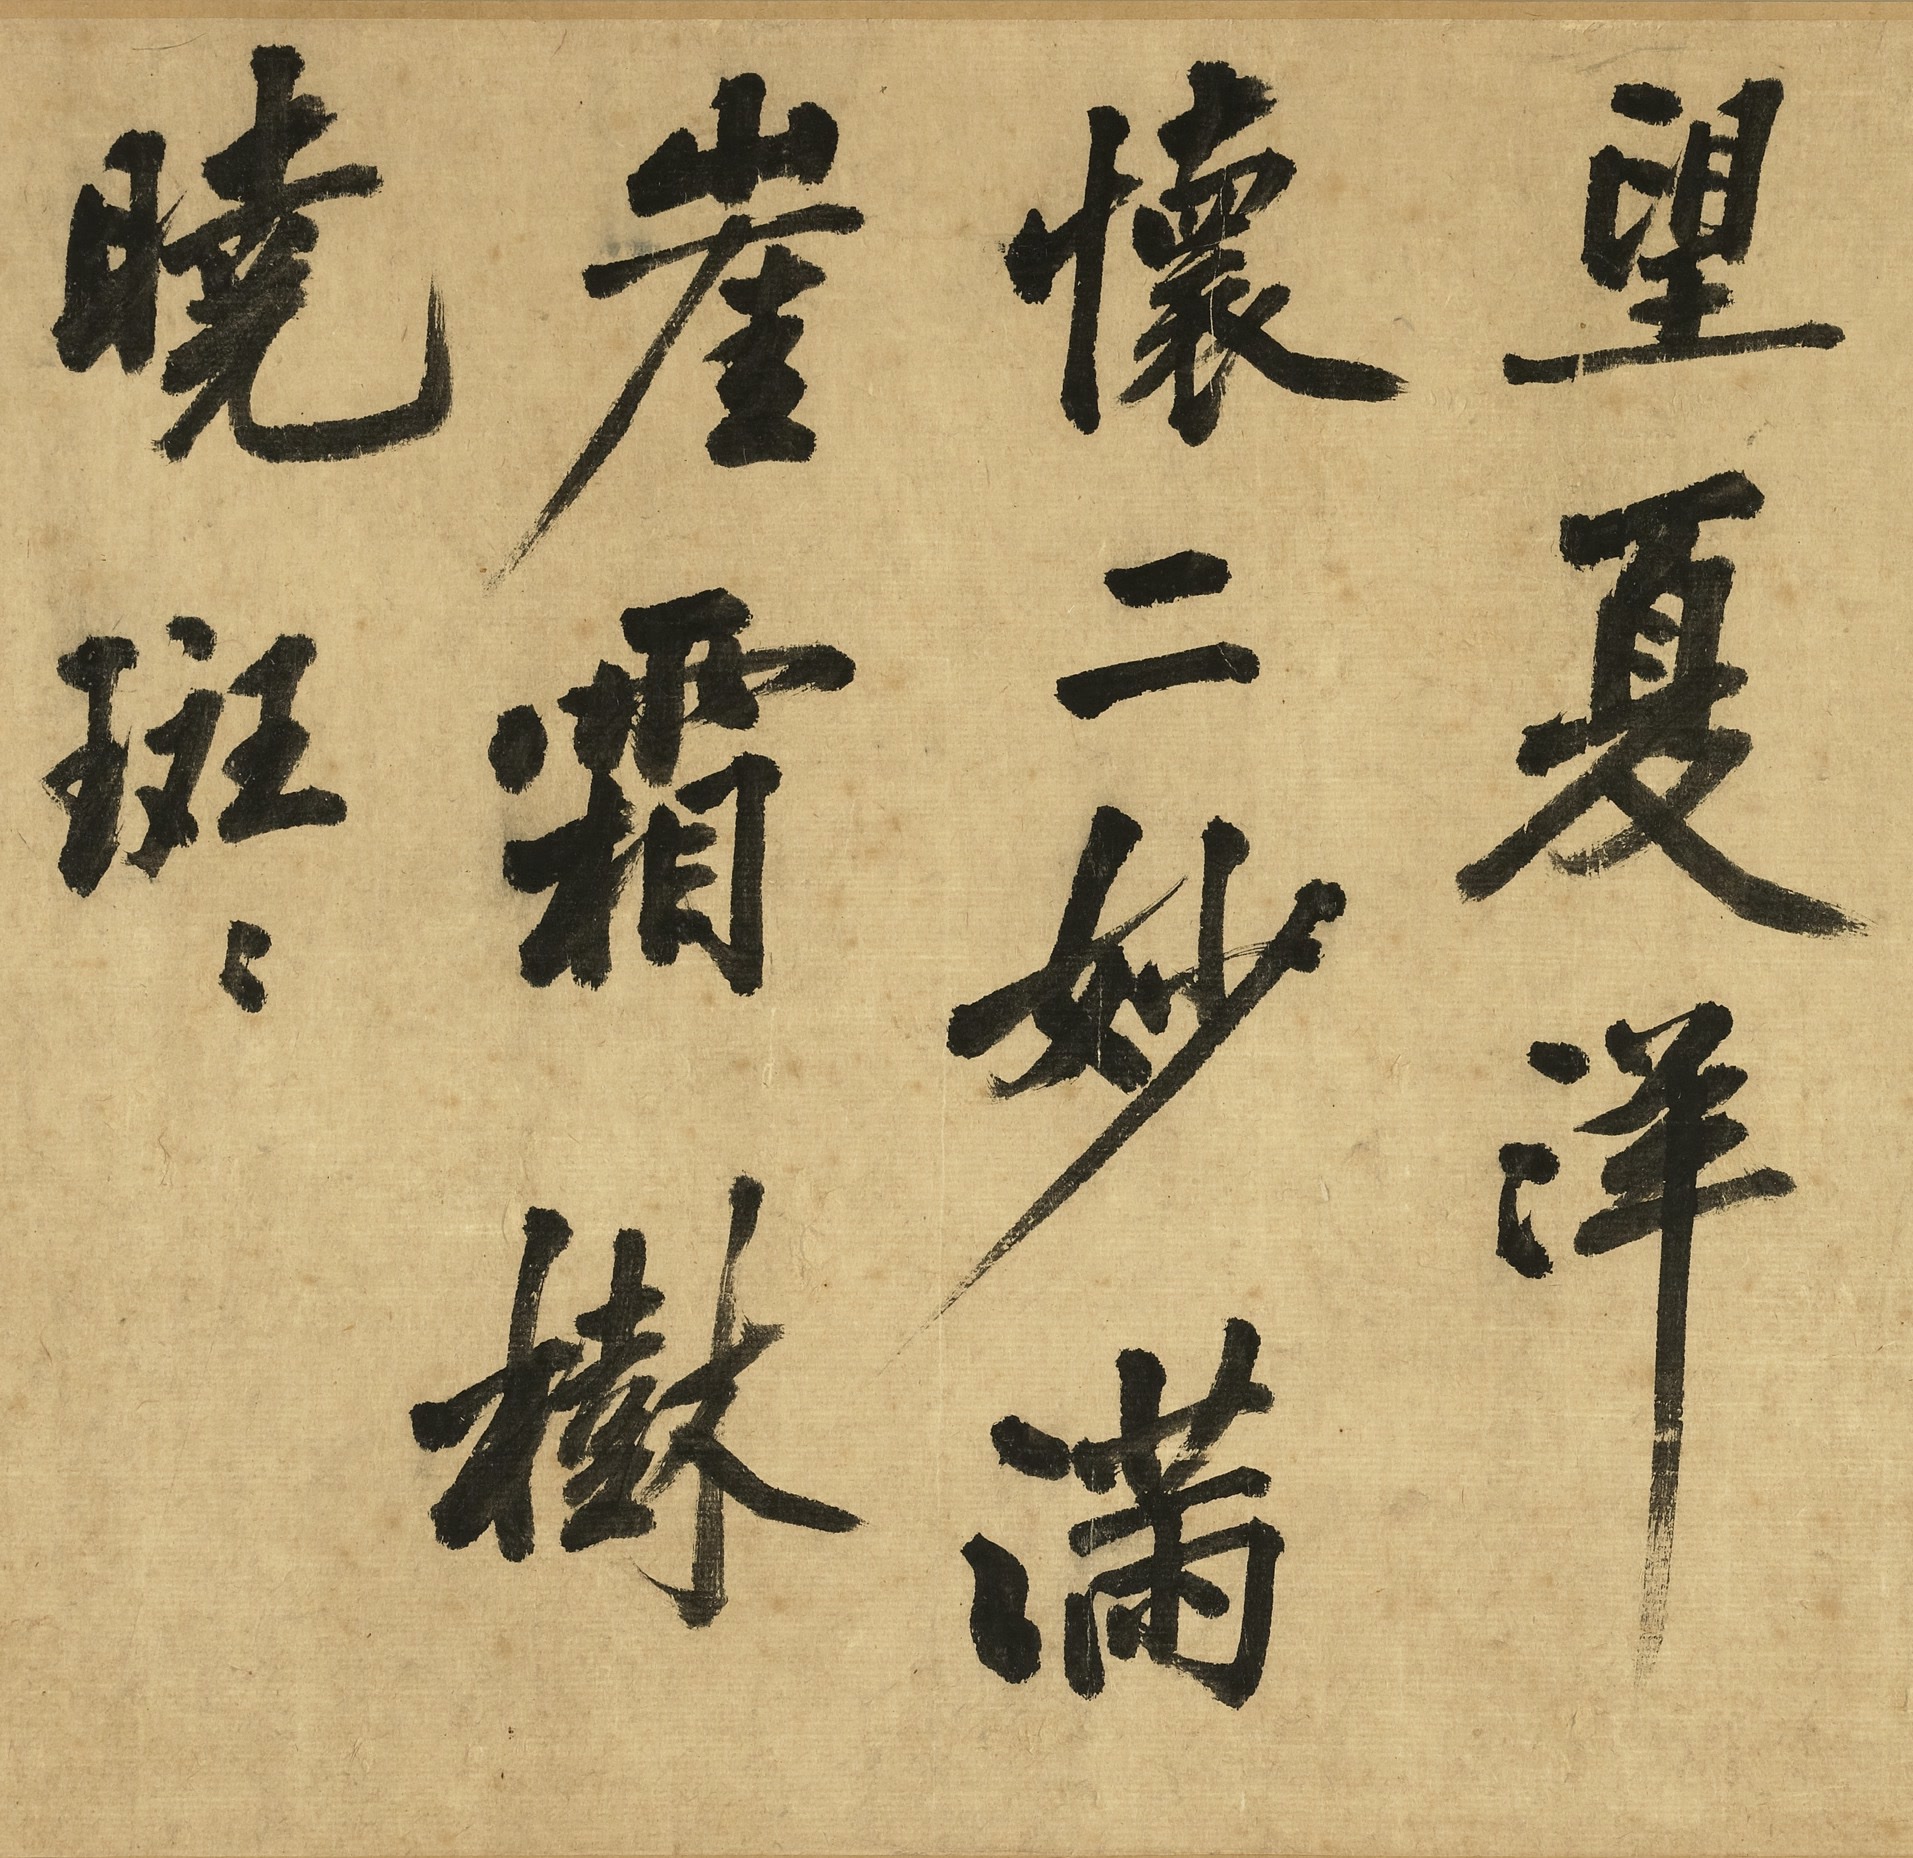 望夏洋
懷二妙滿
崖霜樹
曉斑〻